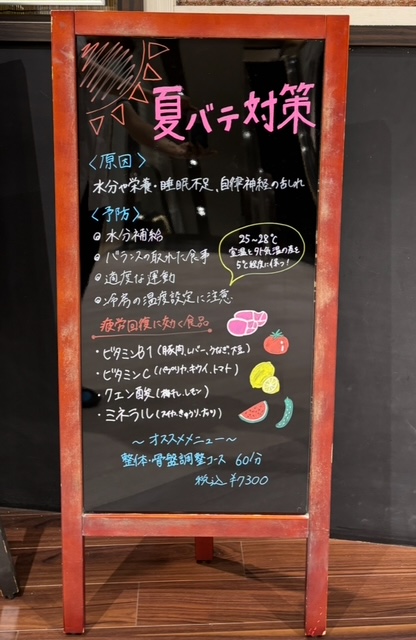 夏バテ対策
〈原因〉
水分や栄養・睡眠不足、自律神経の乱れ
〈予防〉
◎水分補給
◎バランスの取れた食事
◎適度な運動
◎冷房の温度設定に注意
25~28℃
室温と外気温の差を
5℃程度に保つ!
疲労回復に効く食品
・ビタミンB1(豚肉、レバー、うなぎ、大豆)
・ビタミンC(パプリカ、キウイ、トマト)
・クエン酸(梅干し、レモン)
・ミネラル(スイカ、きゅうり、
~オススメメニュー~
整体・骨盤調整コース 60分
税込 ¥7300